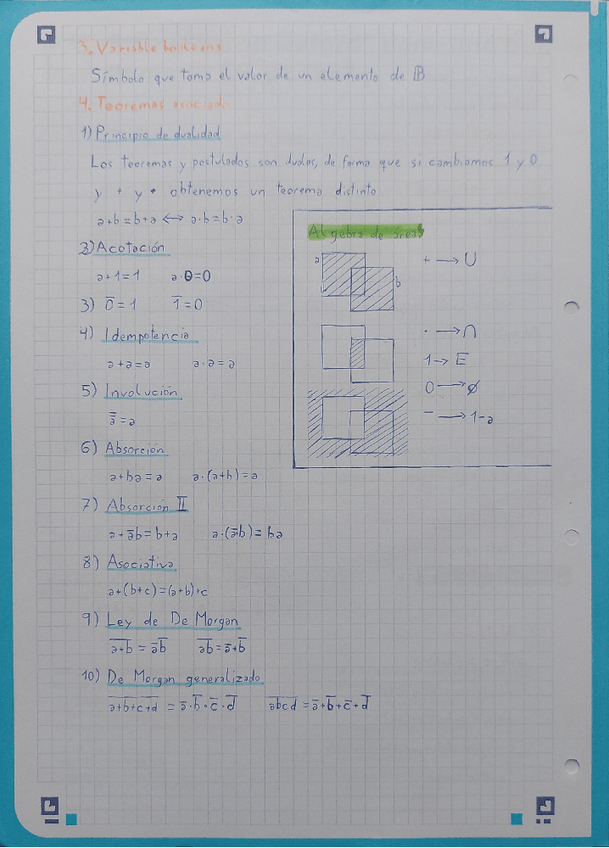 3. Variable booleana
Símbolo que toma el valor de un elemento de 𝔹
4. Teoremas asociado
1) Principio de dualidad
Los teoremas y postulados son duales, de forma que si cambiamos 1 y 0
y + y • obtenemos un teorema distinto
a+b=b+a <-> a·b=b·a
2) Acotación
a+1=1 a·0=0
3) 0̅=1 1̅=0
4) Idempotencia
a+a=a a·a=a
5) Involución
a̿=a
6) Absorción
a+ba=a a·(a+b)=a
7) Absorción II
a+a̅b=b+a a·(a̅·b)=ba
8) Asociativa
a+(b+c)=(a+b)+c
9) Ley de De Morgan
a̅+̅b̅ = a̅b̅ a̅b̅=a̅+b̅
10) De Morgan generalizado
a̅+̅b̅+̅c̅+̅d̅ = a̅·b̅·c̅·d̅ a̅b̅c̅d̅=a̅+b̅+c̅+d̅
Algebra de áreas
a
b
+ → U
· → ∩
1 → E
0 → ∅
− → 1-a